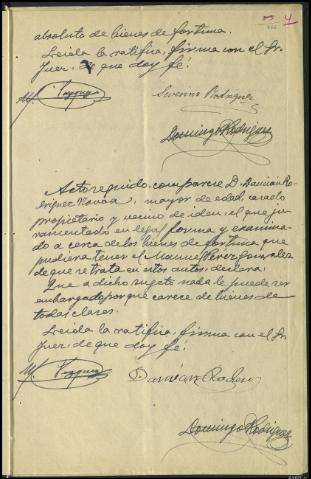 4
absoluto de bienes de fortuna.
Leida la ratifica, firma con el Sr.
Juez, de que doy fé.
Severino Rodriguez
Domingo Rodriguez
Acto seguido, comparece D. Damián Ro-
driguez Navoa, mayor de edad, casado
propietario y vecino de idem, el que ju-
ramentado en legal forma y examina-
do acerca de los bienes de fortuna que
pudiera tener el Manuel Pérez Gonzalez
de que se trata en estos autos, declara:
Que a dicho sujeto nada le puede ser
embargado porque carece de bienes de
todas clases.
Leida la ratifica, firma con el Sr.
Juez, de que doy fé.
Damian Rodrig
Domingo Rodriguez